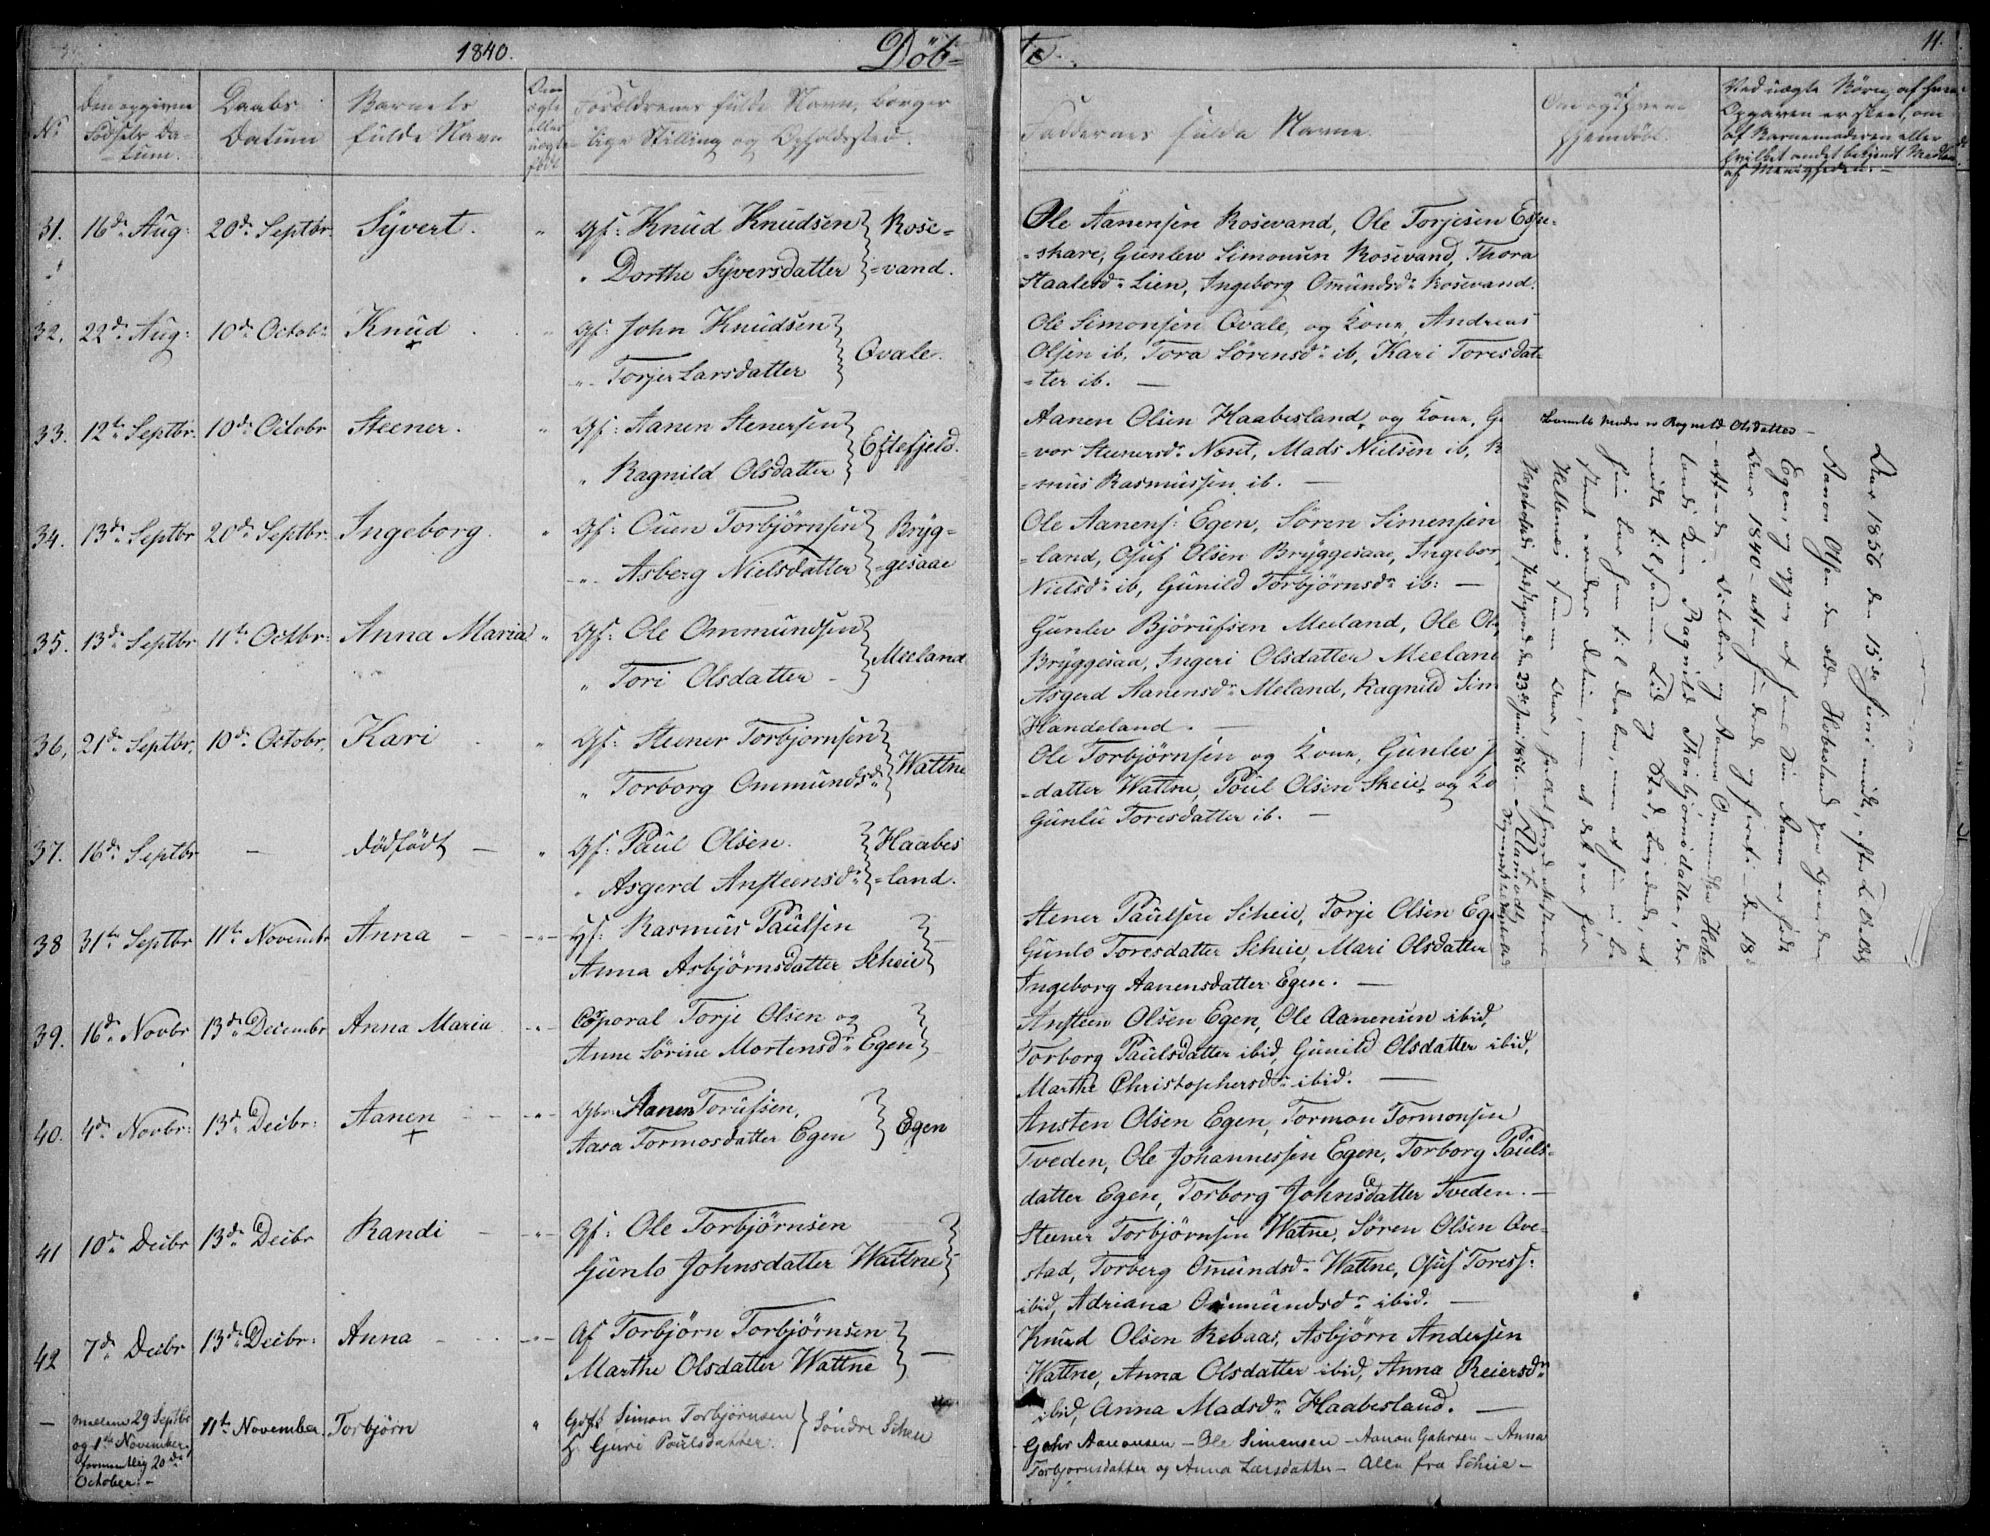 1840.
Döb-
te.
11.
No
Den opgivne
Fødsels Da-
tum.
Daabs
Datum
Barnets
fulde Navn
Om
ægte
eller
uægte
født
Forældrenes fulde Navn, borger-
lige Stilling og Opholdssted.
Faddernes fulde Navne.
hjemdöbt.
Ved uægte Börn, af hvem
Opgaven er skeet, om
af Barnemoderen eller
hvilket andet bekjendt Medlem
af Menigheden. -
31. 16de Aug: 20de Septbr. Syvert. " Gf: Knud Knudsen
" Dorthe Syversdatter
Rose-
=vand.
Ole Aanensen Rosevand, Ole Torjesen Espe-
=skare, Gunlev Simonsen Rosevand, Thora
Staalesdr Lien, Ingeborg Omundsdr Rosevand.
32. 22de Aug: 10de Octobr Knud + " Gf: John Knudsen
" Torjer Larsdatter
Qvale.
Ole Simonsen Qvale, og Kone, Andreas
Olsen ib. Tora Sörensdr ib, Kari Toresdat-
=ter ib. —
33. 12te Septbr. 10de Octobr Steener. " Gf: Aanen Stenersen
" Ragnild Olsdatter
Eftefjeld.
Aanen Olsen Haabesland, og Kone, G
=vor Steenersdr Næset, Mads Nielsen ib, R
=mus Rasmussen ib. —
34. 13de Septbr 20de Septbr. Ingeborg. " Gf: Ouen Torbjörnsen
" Asberg Nielsdatter
Bryg-
=gesaae
Ole Aanens: Egen, Sören Simensen
=land, Osuf Olsen Bryggesaae, Ingebor
Nielsdr ib, Gunild Torbjörnsdr ib: —
35. 13de Septbr 11te Octbr: Anna Maria " Gf: Ole Ommundsen
" Tori Olsdatter
Meeland
Gunlev Björufsen Meeland, Ole Ols
Bryggesaa, Ingeri Olsdatter Meeland
Asgerd Aanensdr Meland, Ragnild Sim
Handeland. —
36, 21de Septbr, 10de Octobr, Kari " Gf: Steener Torbjornsen
" Torborg Ommundsdr
Wattne
Ole Torbjörnsen og Kone, Gunlev
=datter Wattne, Poul Olsen Skeie, og Ko
Gunlu Toresdatter ib. —
37. 16de Septbr — dödfödt — " Gf: Paul Olsen.
" Asgerd Ansteensdr
Haabes
=land.
38 31te Septbr 11te Novembr Anna — " Hf: Rasmus Paulsen
Anna Asbjörnsdatter Scheie
Stener Paulsen Scheie, Torje Olsen Eg
Gunlo Toresdatter Scheie, Mari Olsdatter
Ingeborg Aanensdatter Egen. —
39. 16de Novbr 13de Decembr Anna Maria " Coporal Torje Olsen og
Anne Sörine Mortensdr Egen
Ansteen Olsen Egen, Ole Aanensen ibid,
Torborg Paulsdatter ibid, Gunild Olsdatter ibid,
Marthe Christophersdr ibid. —
40. 4de Novbr: 13de Decbr: Aanen + " Gbr: Aanen Torufsen,
Aasa Tormosdatter Egen
Egen
Ansten Olsen Egen, Tormon Tormonsen
Tveden, Ole Johannessen Egen, Torborg Pauls-
datter Egen, Torborg Johnsdatter Tveden. —
41 10de Decbr 13de Decbr Randi — " Gf: Ole Torbjörnsen
Gunlo Johnsdatter Wattne
Steener Torbjörnsen Watne, Sören Olsen Ove-
stad, Torberg Omundsdr Wattne, Osuf Toress:
ibid, Adriana Ommundsdr ibid. —
42 7de Decbr 13de Decbr: Anna — " Gf Torbjörn Torbjörnsen
Marthe Olsdatter Wattne
Knud Olsen Rebaas, Asbjörn Andersen
Wattne, Anna Olsdatter ibid, Anna Reiersdr
ibid, Anna Madsdr Haabesland. —
— mellem 29 Septbr
og 1ste November,
formentlig 20de
October. -
11te November. Torbjörn " Gdf: Simon Torbjörnsen
H. Guri Poulsdatter.
Söndre Scheie
Gahr Aanonsen — Ole Simensen — Aanon Gahrsen — Anna
Torbjornsdatter og Anna Larsdatter — Alle fra Scheie —
Barnets Moder er Ragnild Olsdatter —
Aar 1856 den 15de Juni mödte, efter
Aanon Olsen den ældre Hobesland
Egen, og opgav at hans Sön Aanon er födt
Aar 1840 atten hundrede og fireti den 18
October, og Aanon Ommundsen
Kone Ragnild Thorbjörnsdatter, der
mödte til samme Tid og Sted,
Hægebostads Præstegaard den 23de Juni 1856.